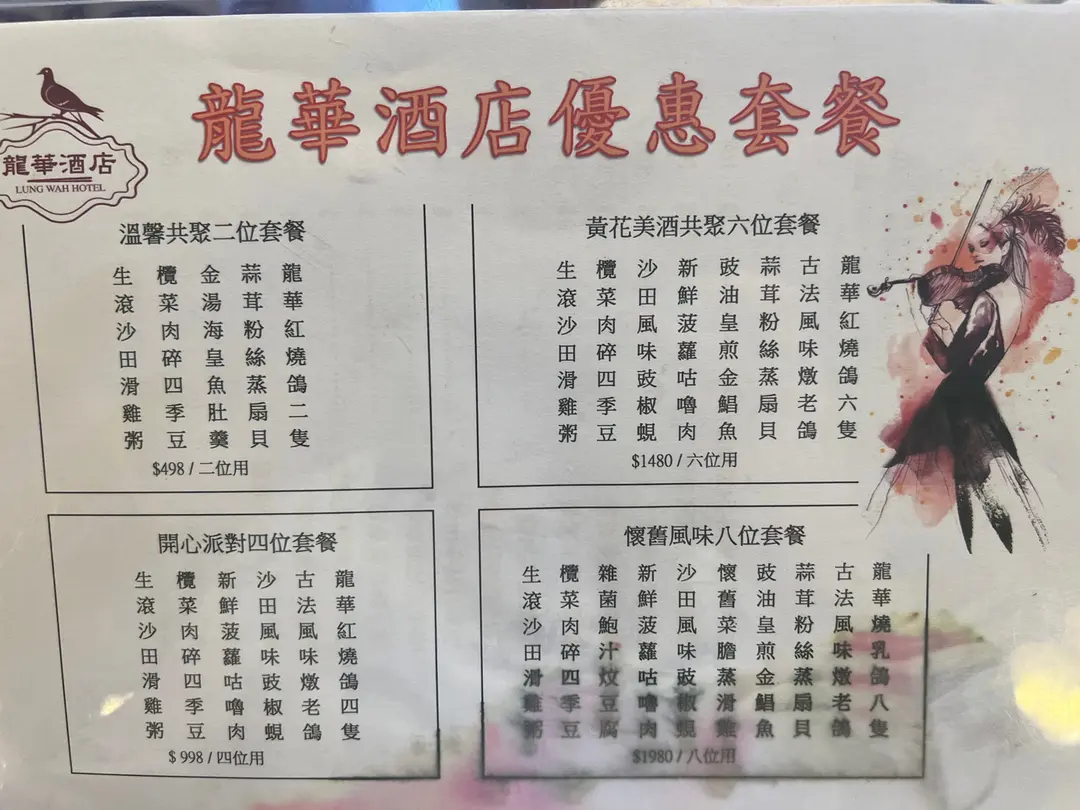 龍華酒店優惠套餐
龍華酒店
LUNG WAH HOTEL
溫馨共聚二位套餐
龍華紅燒鴿二隻
蒜茸粉絲蒸扇貝
金湯海皇魚肚羹
欖菜肉碎四季豆
生滾沙田滑雞粥
$498 / 二位用
黃花美酒共聚六位套餐
龍華紅燒鴿六隻
古法風味燉老鴿
蒜茸粉絲蒸扇貝
豉油皇煎金鯧魚
新鮮菠蘿咕嚕肉
沙田風味豉椒蜆
欖菜肉碎四季豆
生滾沙田滑雞粥
$1480 / 六位用
開心派對四位套餐
龍華紅燒鴿四隻
古法風味燉老鴿
沙田風味豉椒蜆
新鮮菠蘿咕嚕肉
欖菜肉碎四季豆
生滾沙田滑雞粥
$ 998 / 四位用
懷舊風味八位套餐
龍華燒乳鴿八隻
古法風味燉老鴿
蒜茸粉絲蒸扇貝
豉油皇煎金鯧魚
懷舊菜膽蒸滑雞
沙田風味豉椒蜆
新鮮菠蘿咕嚕肉
雜菌鮑汁炆豆腐
欖菜肉碎四季豆
生滾沙田滑雞粥
$1980 / 八位用